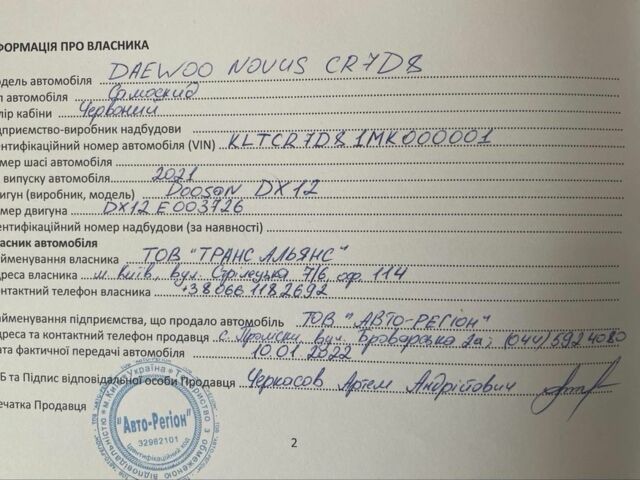 ФОРМАЦІЯ ПРО ВЛАСНИКА
одель автомобіля DAEWOO NOVUS CR7D8
п автомобіля Самоскид
лір кабіни Червоний
дприємство-виробник надбудови
ентифікаційний номер автомобіля (VIN) KLTCR7D81MK000001
мер шасі автомобіля
випуску автомобіля 2021
игун (виробник, модель) DOOSAN DX12
мер двигуна DX12E003726
ентифікаційний номер надбудови (за наявності)
асник автомобіля
айменування власника ТОВ "ТРАНС АЛЬЯНС"
дреса власника м. Київ, вул. Стрілецька 7/6 оф. 114
онтактний телефон власника +38 066 118 26 92
айменування підприємства, що продало автомобіль ТОВ "АВТО-РЕГІОН"
дреса та контактний телефон продавця с. Проліски вул. Броварська 2а; (044) 592 40 80
ата фактичної передачі автомобіля 10.01.2022
Б та Підпис відповідальної особи Продавця Черкасов Артем Андрійович
ечатка Продавця
"Авто-Регіон"
32982101
ідентифікаційний код
2